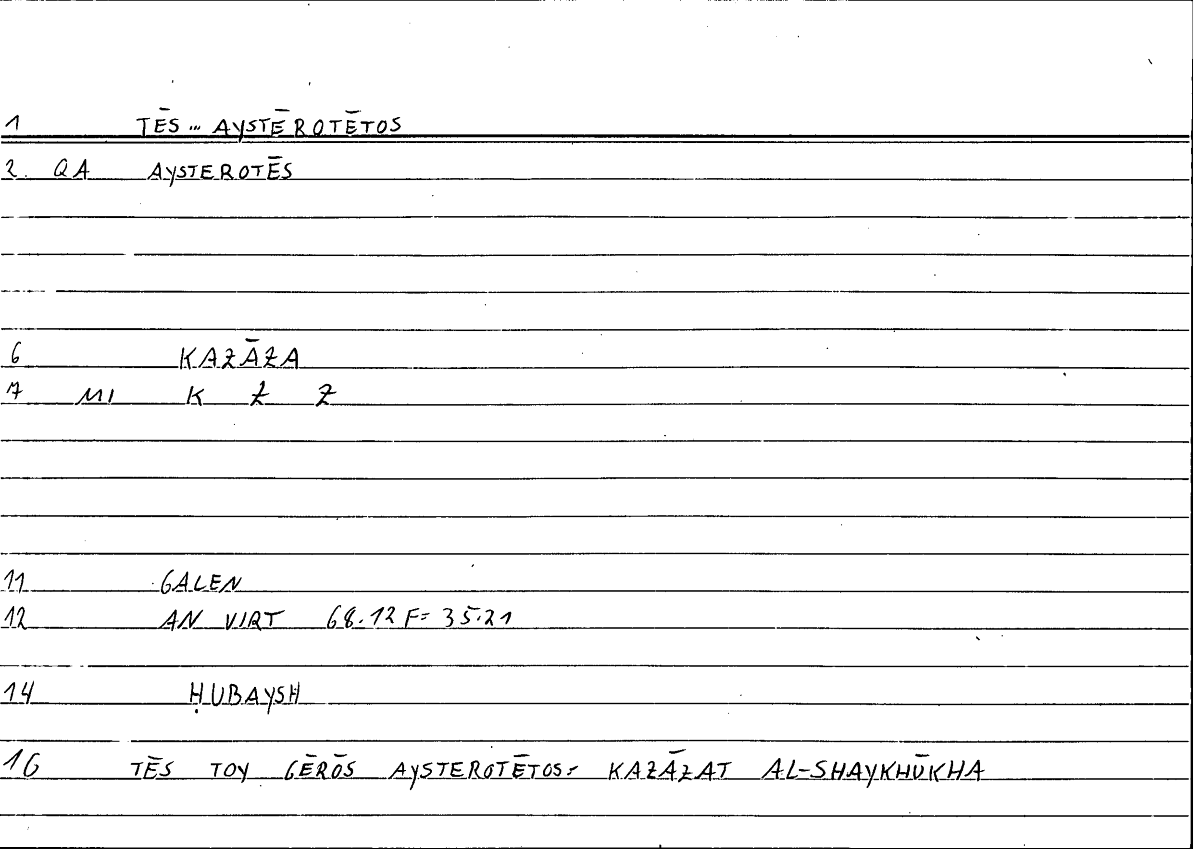 1 TĒS ... AYSTĒROTĒTOS
2. QA AYSTEROTĒS
6 KAZĀZA
7 MI K Z Z
11 GALEN
12 AN VIRT 68.12 F= 35.21
14 ḤUBAYSH
16 TĒS TOY GĒRŌS AYSTEROTĒTOS= KAZĀZAT AL-SHAYKHŪKHA